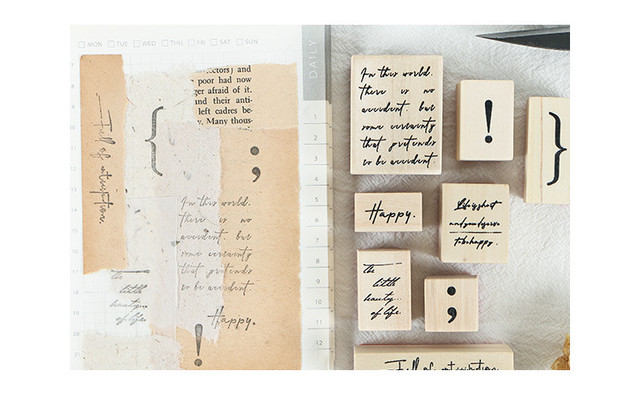 MON TUE WED THU FRI SAT SUN
DAILY
ectors) and
poor had now
ger afraid of it.
and their anti-
left cadres be-
y. Many thous-
Full of
{
;
In this world.
there is no
accident but
some certainty
that pretends
to be accident.
the
little
beauty...
of life.
Happy.
!
1
2
3
4
5
6
7
8
9
10
11
12
In this world.
there is no
accident but
some certainty
that pretends
to be accident.
!
}
Happy.
Life is short
and you deserve
to be happy.
the
little
beauty...
of life.
;
Full of